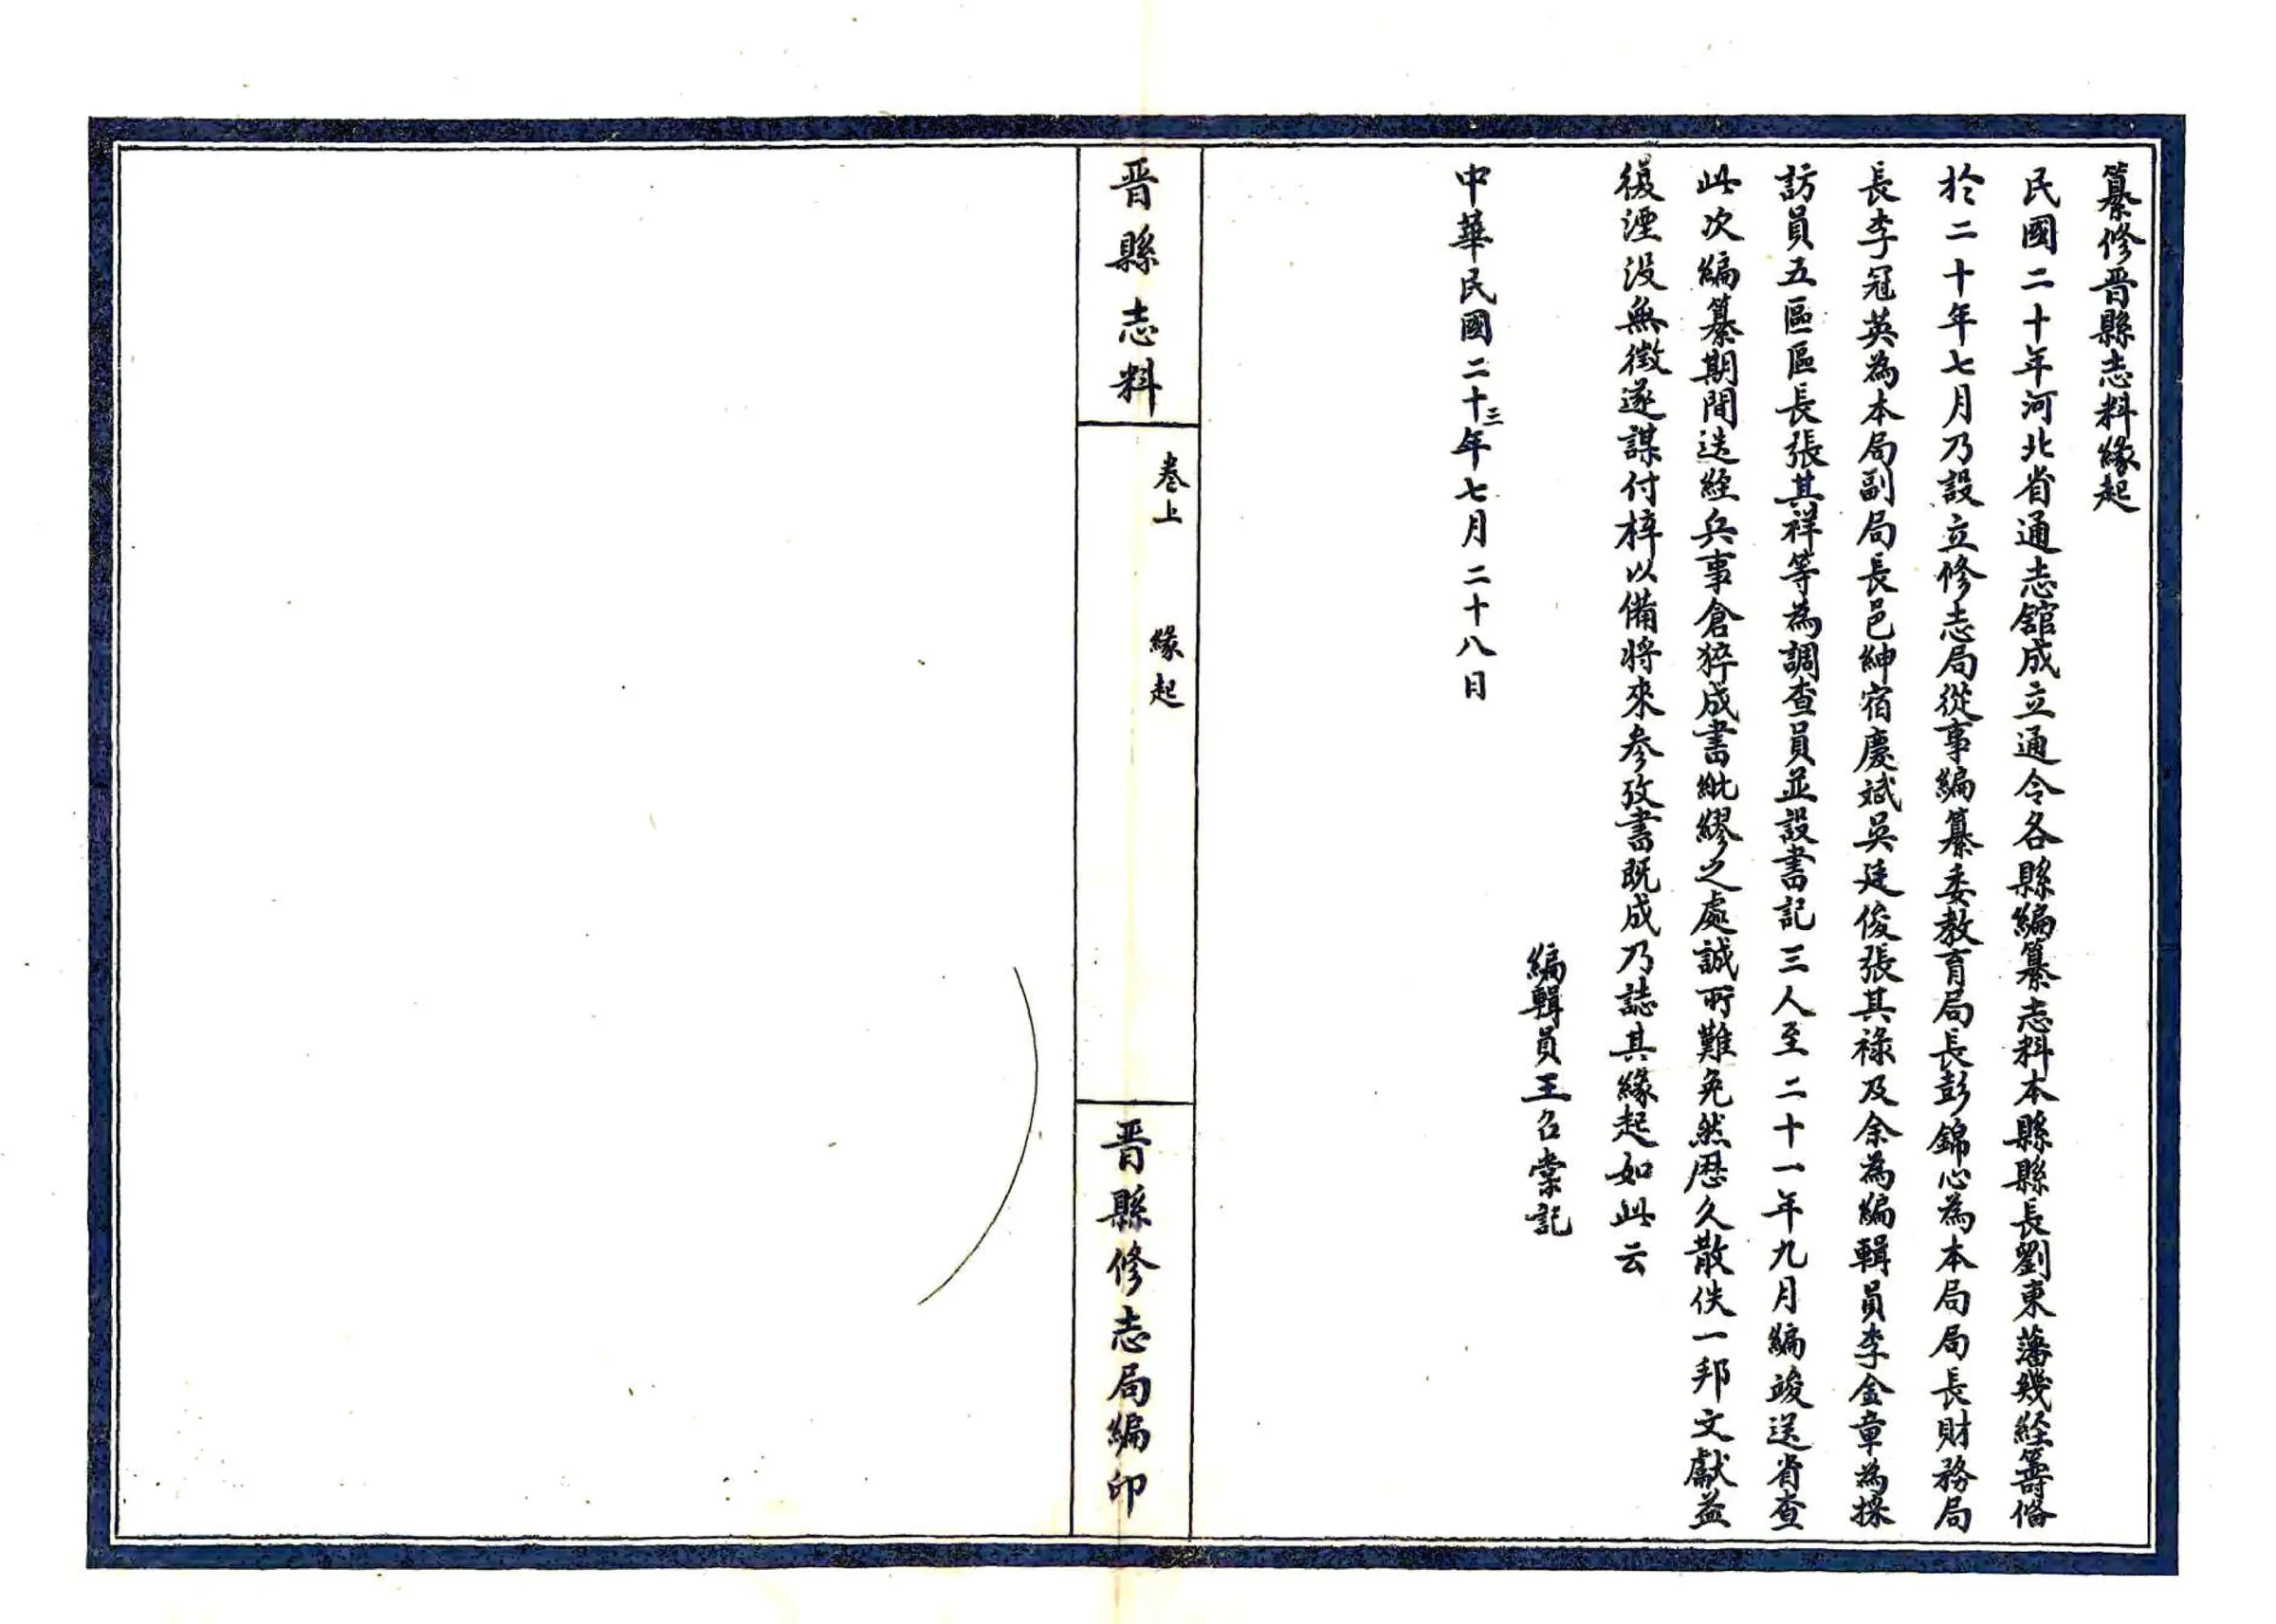 纂修晋縣志料緣起
民國二十年河北省通志舘成立通令各縣編纂志料本縣縣長劉東藩幾經籌備
於二十年七月乃設立修志局從事編纂委教育局長彭錦心為本局局長財務局
長李冠英為本局副局長邑紳宿慶斌吳廷俊張其祿及余為編輯員李金章為採
訪員五區區長張其祥等為調查員並設書記三人至二十一年九月編竣送省查
此次編纂期間迭經兵事倉猝成書紕繆之處誠所難免然歷久散佚一邦文獻益
復湮没無徵遂謀付梓以備將來參攷書既成乃誌其緣起如此云
編輯員王召棠記
中華民國二十三年七月二十八日
晋縣志料
卷上 緣起
晋縣修志局編印